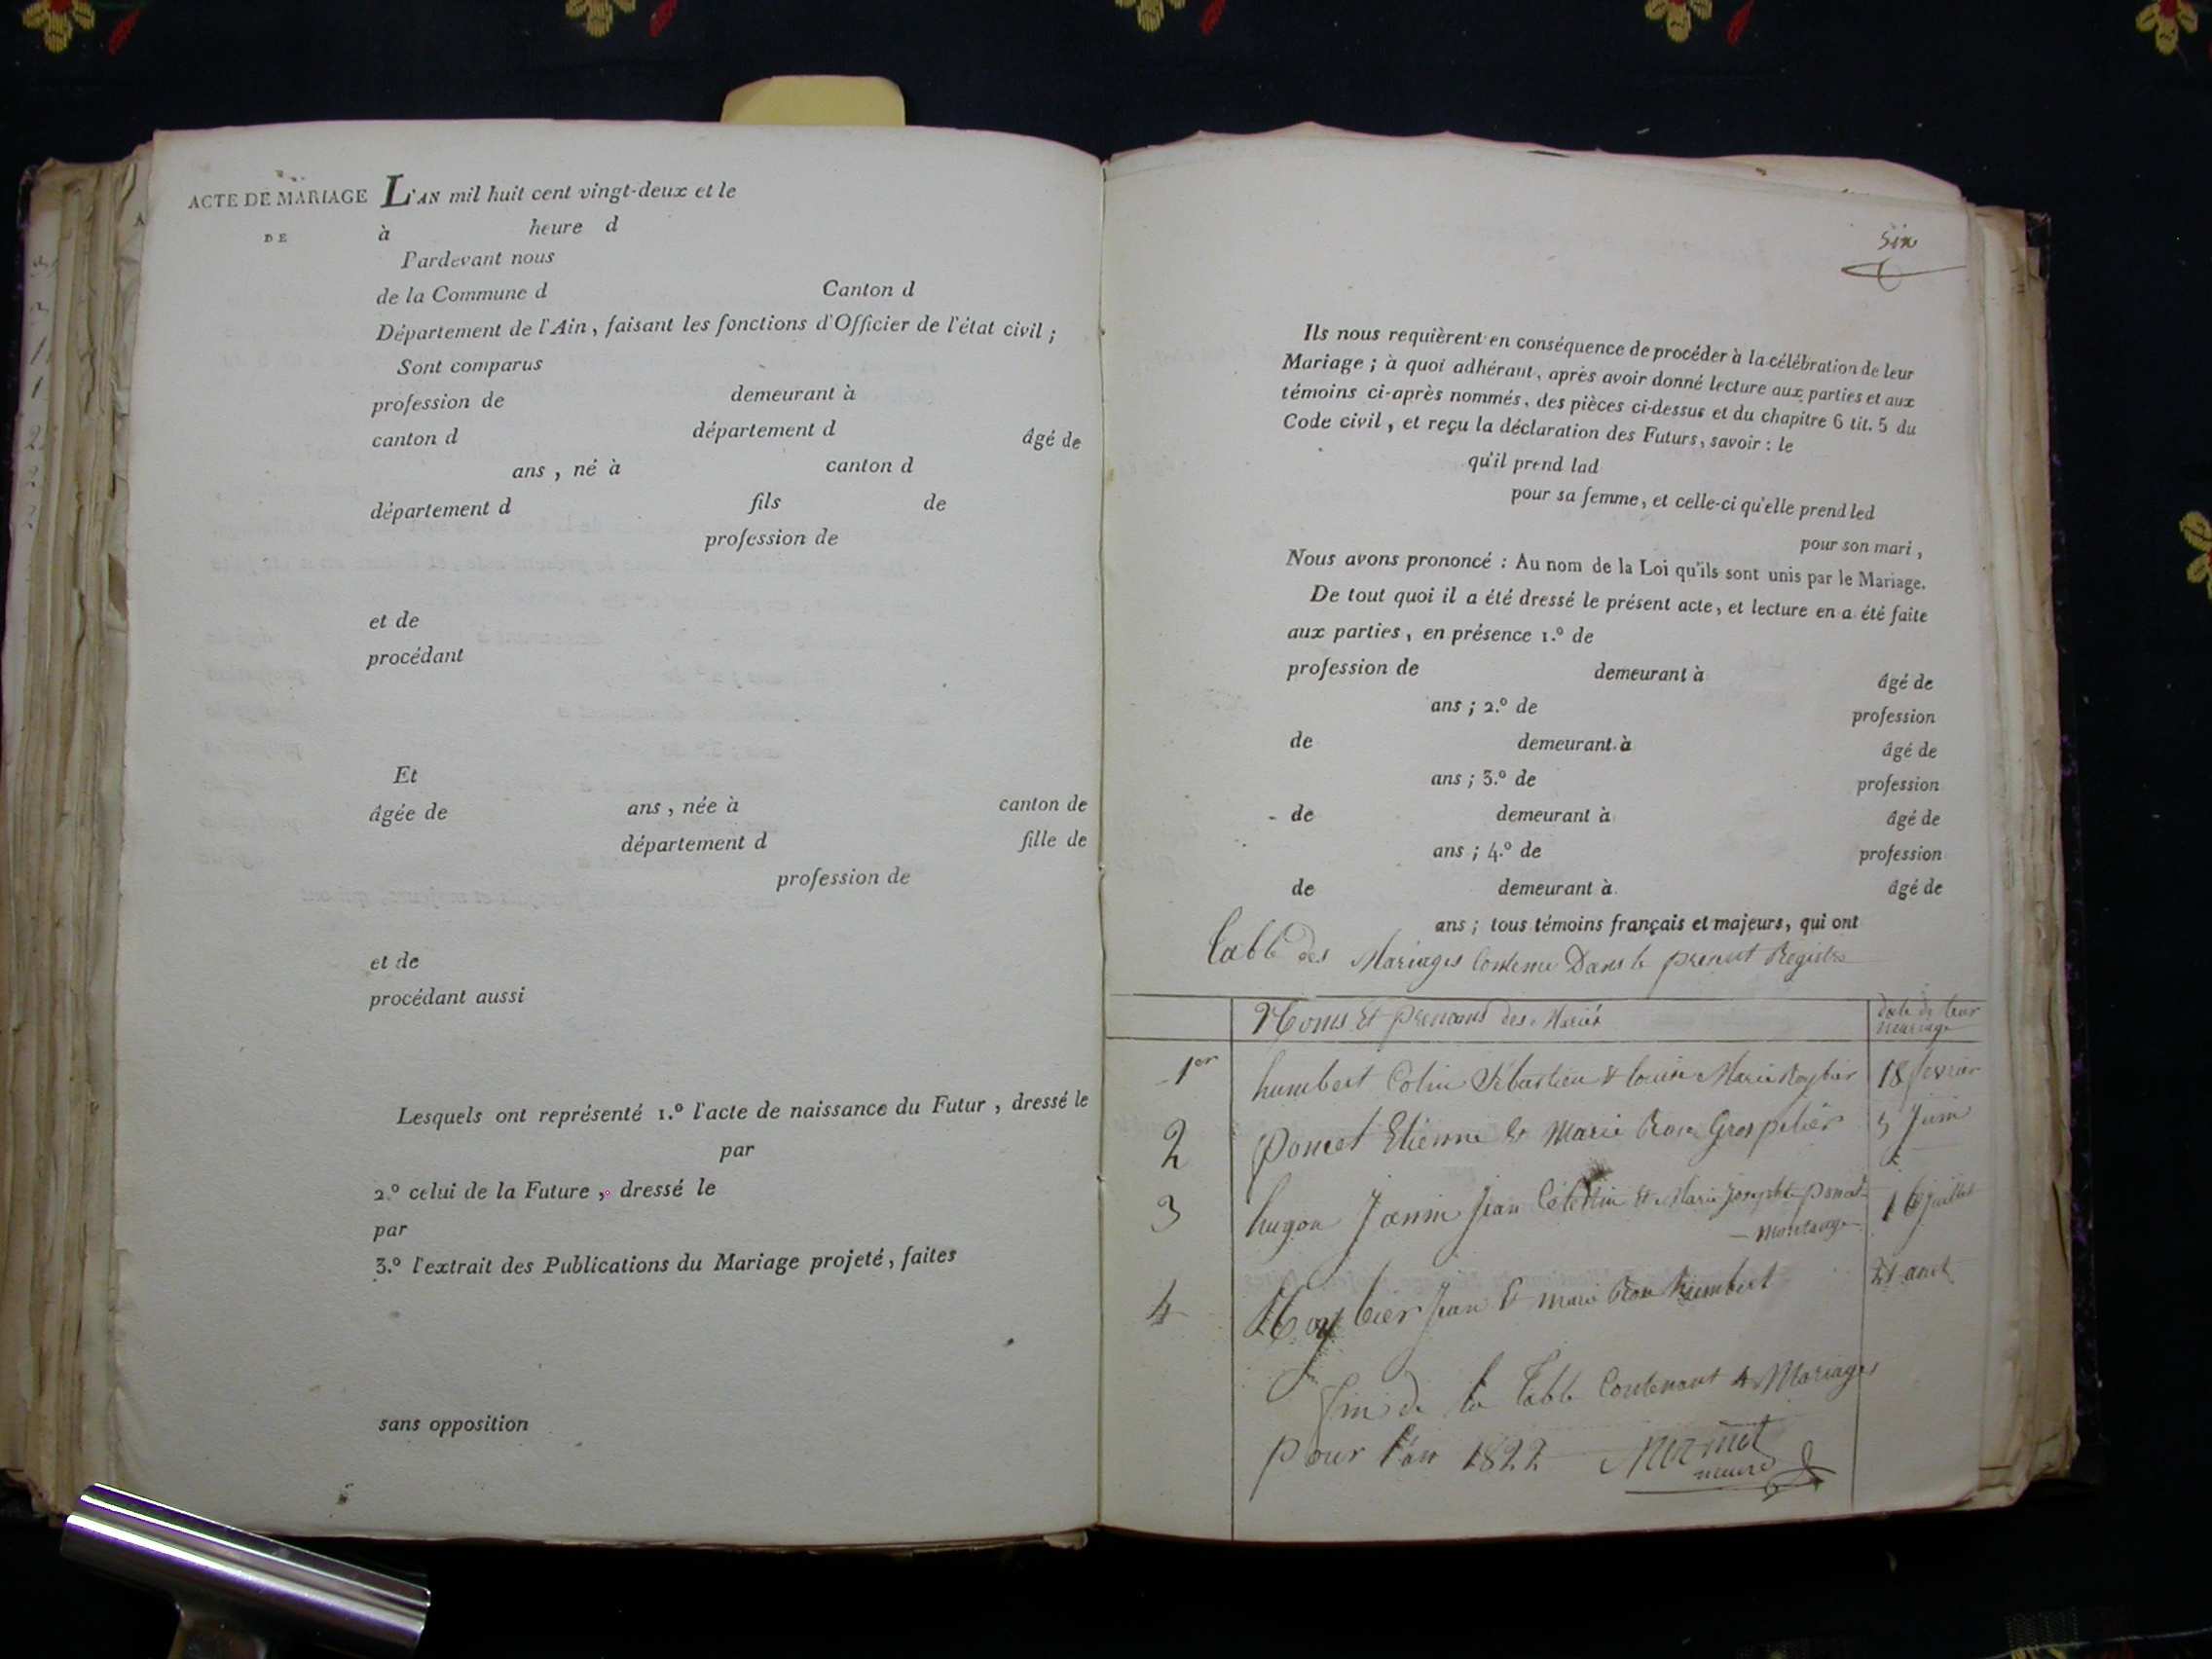 ACTE DE MARIAGE
DE
L'AN mil huit cent vingt-deux et le
à heure d
Pardevant nous
de la Commune d Canton d
Département de l'Ain, faisant les fonctions d'Officier de l'état civil ;
Sont comparus
profession de demeurant à
canton d département d âgé de
ans , né à canton d
département d fils de
profession de
et de
procédant
Et
âgée de ans , née à canton de
département d fille de
profession de
et de
procédant aussi
Lesquels ont représenté 1.º l'acte de naissance du Futur , dressé le
par
2.º celui de la Future , dressé le
par
3.º l'extrait des Publications du Mariage projeté, faites
sans opposition
Six
Ils nous requièrent en conséquence de procéder à la célébration de leur
Mariage ; à quoi adhérant, après avoir donné lecture aux parties et aux
témoins ci-après nommés, des pièces ci-dessus et du chapitre 6 tit. 5 du
Code civil , et reçu la déclaration des Futurs, savoir : le
qu'il prend lad
pour sa femme, et celle-ci qu'elle prend led
pour son mari ,
Nous avons prononcé : Au nom de la Loi qu'ils sont unis par le Mariage.
De tout quoi il a été dressé le présent acte, et lecture en a été faite
aux parties, en présence 1.º de
profession de demeurant à âgé de
ans ; 2.º de profession
de demeurant à âgé de
ans ; 3.º de profession
de demeurant à âgé de
ans ; 4.º de profession
de demeurant à âgé de
ans ; tous témoins français et majeurs, qui ont
Table des Mariages Contenu Dans le present Registre
Noms Et prenoms des Mariés date de leur
mariage
1er humbert Colin Sebastien & louise Marie 18 fevrier
2 Poncet Etienne Et Marie Rose Grospelier 5 Juin
3 hugon Jannin Jean Célestin Et Marie Josephte 16 juillet
montange
4 Jean Et marie Rose humbert 21 aout
fin de la Table Contenant 4 Mariages
pour l'an 1822 Mermet
maire